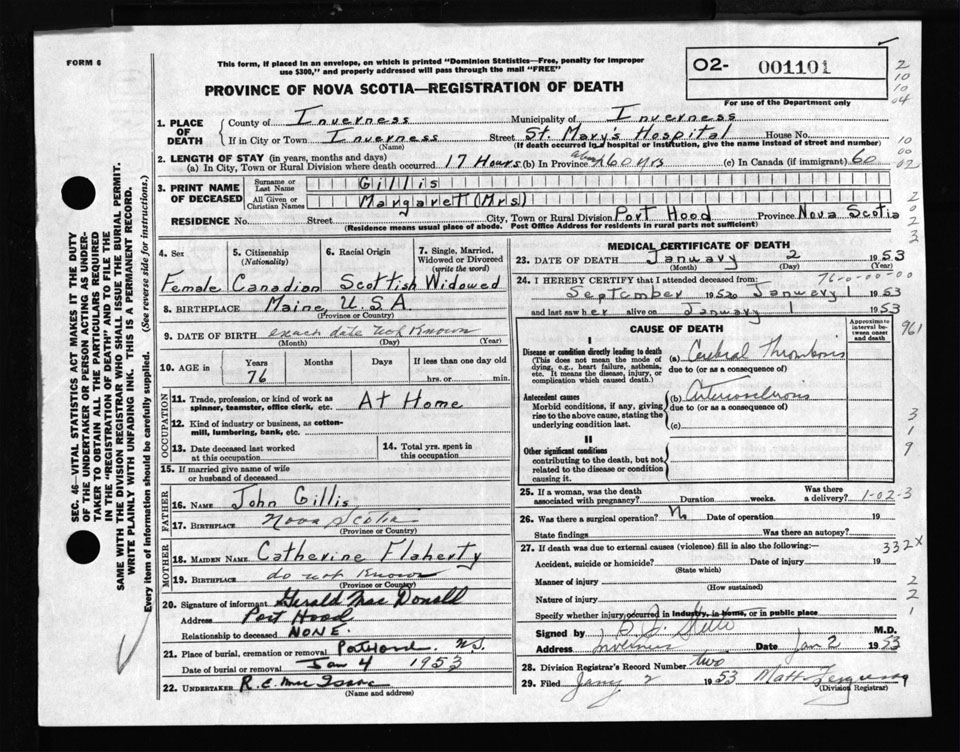 FORM 6
This form, if placed in an envelope, on which is printed "Dominion Statistics—Free, penalty for improper
use $300," and properly addressed will pass through the mail "FREE"
02- 001101
For use of the Department only
PROVINCE OF NOVA SCOTIA—REGISTRATION OF DEATH
2
10
10
04
1. PLACE OF DEATH
County of Inverness Municipality of Inverness
If in City or Town Inverness Street St. Mary's Hospital House No.
(Name) (If death occurred in a hospital or institution, give the name instead of street and number)
10
00
02
2. LENGTH OF STAY (in years, months and days)
(a) In City, Town or Rural Division where death occurred 17 Hours (b) In Province about 60 yrs (c) In Canada (if immigrant) 60
3. PRINT NAME OF DECEASED
Surname or Last Name Gillis
All Given or Christian Names Margaret (Mrs)
RESIDENCE No. Street City, Town or Rural Division Port Hood Province Nova Scotia
(Residence means usual place of abode. Post Office Address for residents in rural parts not sufficient)
2
0
2
3
4. Sex
Female
5. Citizenship
(Nationality)
Canadian
6. Racial Origin
Scottish
7. Single, Married,
Widowed or Divorced
(write the word)
Widowed
8. BIRTHPLACE Maine U.S.A.
(Province or Country)
9. DATE OF BIRTH exact date not Known
(Month) (Day) (Year)
10. AGE in Years Months Days If less than one day old
76 hrs. or min.
OCCUPATION
11. Trade, profession, or kind of work as
spinner, teamster, office clerk, etc. At Home
12. Kind of industry or business, as cotton-
mill, lumbering, bank, etc.
13. Date deceased last worked
at this occupation
14. Total yrs. spent in
this occupation
15. If married give name of wife
or husband of deceased
FATHER
16. NAME John Gillis
17. BIRTHPLACE Nova Scotia
(Province or Country)
MOTHER
18. MAIDEN NAME Catherine Flaherty
19. BIRTHPLACE do not Know
(Province or Country)
20. Signature of informant Gerald MacDonald
Address Port Hood
Relationship to deceased NONE.
21. Place of burial, cremation or removal N.S.
Date of burial or removal Jan 4 1953
22. UNDERTAKER R.E. Mac Isaac
(Name and address)
MEDICAL CERTIFICATE OF DEATH
23. DATE OF DEATH January 2 1953
(Month) (Day) (Year)
24. I HEREBY CERTIFY that I attended deceased from: 76-0-00-00
September 1952 to January 1 1953
and last saw her alive on January 1 1953
CAUSE OF DEATH
Approximate
interval be-
tween onset
and death
961
I
Disease or condition directly leading to death
(This does not mean the mode of
dying, e.g., heart failure, asthenia,
etc. It means the disease, injury, or
complication which caused death.)
(a) Cerebral Thrombosis
due to (or as a consequence of)
Antecedent causes
Morbid conditions, if any, giving
rise to the above cause, stating the
underlying condition last.
(b) Arteriosclerosis
due to (or as a consequence of)
(c)
3
1
9
II
Other significant conditions
contributing to the death, but not
related to the disease or condition
causing it.
25. If a woman, was the death
associated with pregnancy? Duration weeks. Was there
a delivery? 1-02-3
26. Was there a surgical operation? No Date of operation 19
State findings Was there an autopsy?
27. If death was due to external causes (violence) fill in also the following:— 332X
Accident, suicide or homicide? Date of injury 19
(State which)
Manner of injury
(How sustained)
Nature of injury
Specify whether injury occurred in industry, in home, or in public place
2
2
1
Signed by M.D.
Address Inverness Date Jan 2 1953
28. Division Registrar's Record Number two
29. Filed Jany 2 1953 Matt Ferguson
(Division Registrar)
SEC. 46—VITAL STATISTICS ACT MAKES IT THE DUTY
OF THE UNDERTAKER OR PERSON ACTING AS UNDER-
TAKER TO OBTAIN ALL THE PARTICULARS REQUIRED
IN THE "REGISTRATION OF DEATH" AND TO FILE THE
SAME WITH THE DIVISION REGISTRAR WHO SHALL ISSUE THE BURIAL PERMIT.
WRITE PLAINLY WITH UNFADING INK. THIS IS A PERMANENT RECORD.
Every item of information should be carefully supplied. (See reverse side for instructions.)